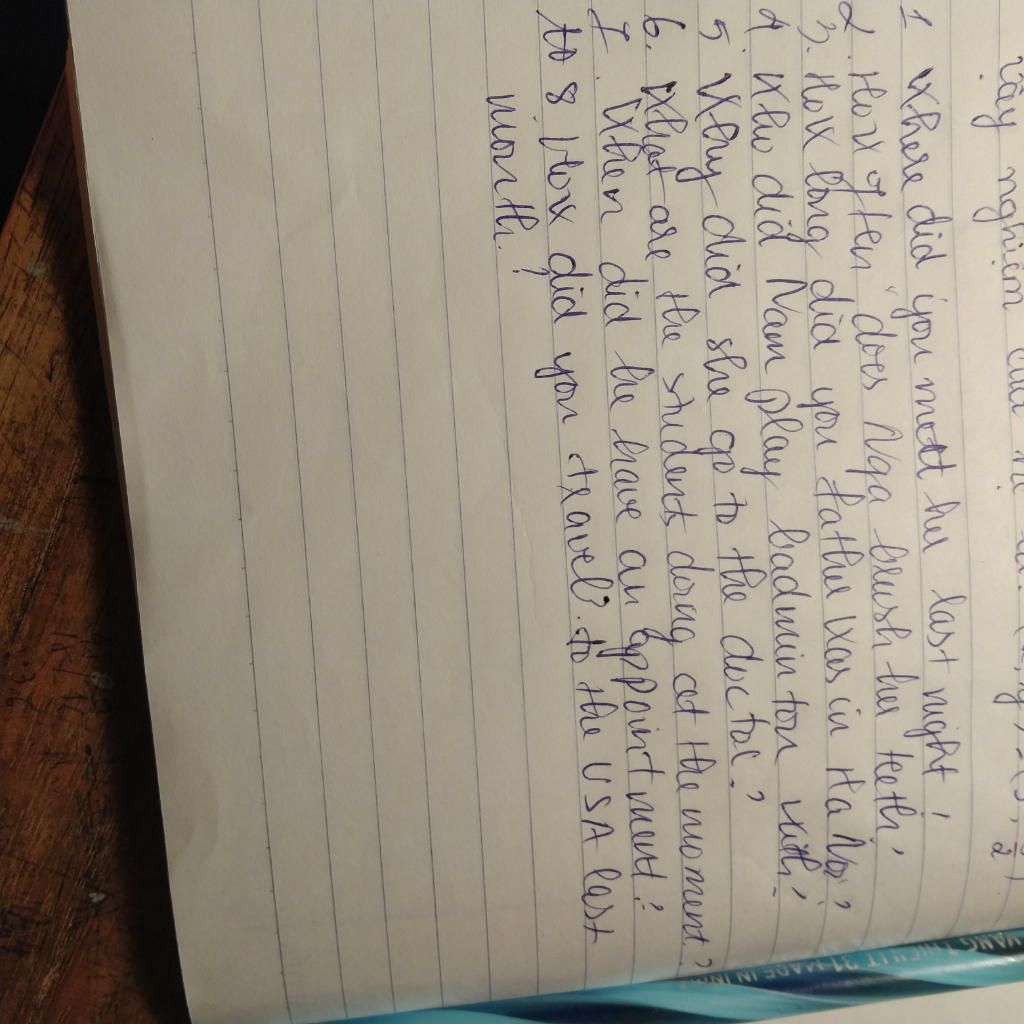 vậy nghiệm của
1 Where did you mett her last night?
2. How often does Nga brush her teeth?
3. How long did you father was in Ha Noi?
4. Who did Nam play badminton with?
5 Why did she go to the doctor?
6. What are the students doing at the moment?
7. When did he have an appointment?
to 8 How did you travel? to the USA last
month?
31 MADE IN